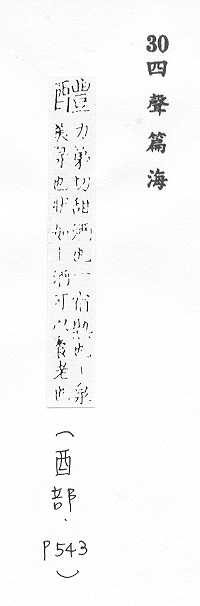 30四聲篇海
醴
力弟切甜酒也一宿熟也丨泉
美泉也狀如丨酒可以養老也
(酉部.P543)